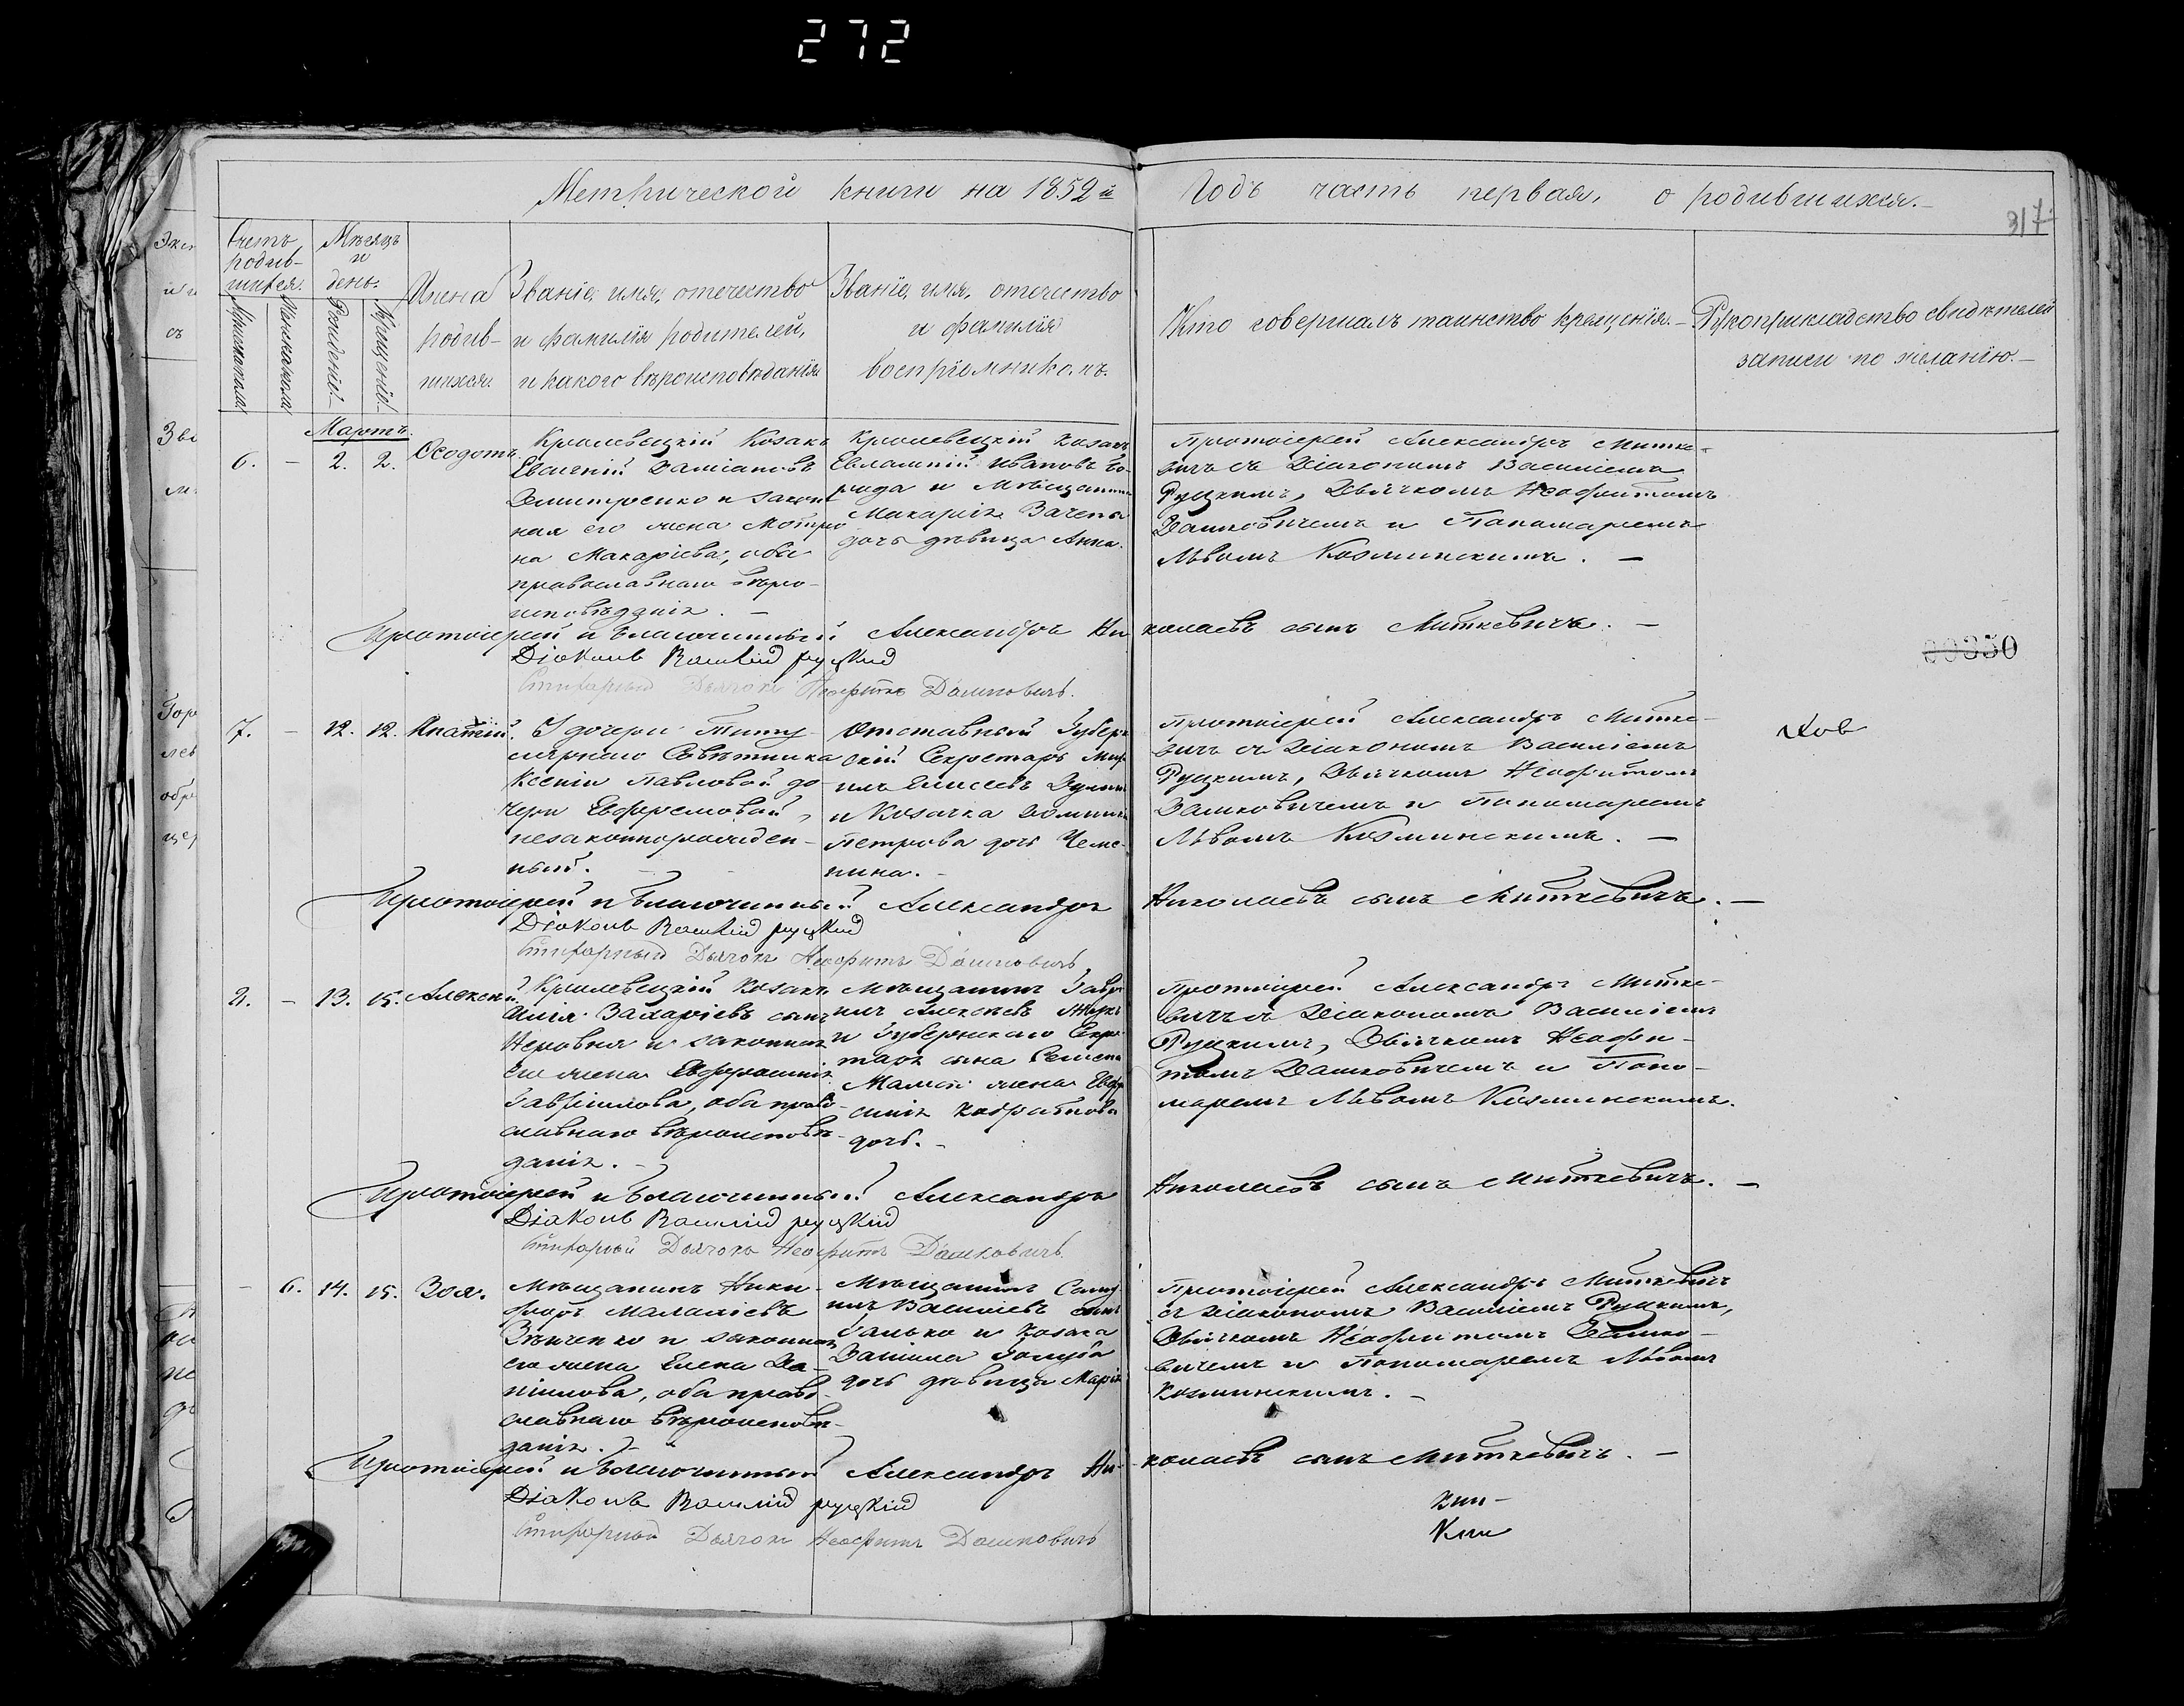 272
Метрической книги на 1852й Годъ часть первая, о родившихся.
317
Счетъ родив-шихся.
Мѣсяцъ и день.
Мужескаго
Женскаго
Рожденія.
Крещенія.
Имена родив-шихся
Званіе, имя, отечество и фамилія родителей, и какого вѣроисповѣданія
Званіе, имя, отечество и фамилія воспріемниковъ.
Кто совершалъ таинство крещенія.
Рукоприкладство свидѣтелей записи по желанію.
Мартъ.
6. - 2. 2. Ѳеодотъ.
Кролевецкій Козакъ
Евгеній Даміановъ
Дмитренко и закон
ная его жена Матро
на Макаріева, оба
православнаго вѣро-
исповѣданія. -
Кролевецкій козакъ
Евлампій Ивановъ
и Мѣщанина
Макарія
дочь дѣвица Анна.
Протоіерей Александръ Митке-
вичъ съ Діакономъ Василіемъ
Руцкимъ, Дьячкомъ Неофитомъ
Дашковичемъ и Пономаремъ
Львомъ Козминскимъ. -
Протоіерей и Благочинный Александръ Николаевъ сынъ Миткевичъ. -
Діаконъ Василій Руцкій
Стихарный Дьячокъ Неофитъ Дашковичъ.
00350
7. - 12. 12. Ипатій.
У дочери Титу-
лярнаго Совѣтника
Ксеніи Павловой до-
чери Ефремовой,
незаконнорожден-
ный.
Отставный Губерн
скій Секретарь
Елисеевъ
и Козачка
Петрова дочь Чеме-
пина. -
Протоіерей Александръ Митке-
вичъ съ Діакономъ Василіемъ
Руцкимъ, Дьячкомъ Неофитомъ
Дашковичемъ и Пономаремъ
Львомъ Козминскимъ. -
Протоіерей и Благочинный Александръ Николаевъ сынъ Миткевичъ. -
Діаконъ Василій Руцкій
Стихарный Дьячокъ Неофитъ Дашковичъ
8. - 13. 15. Алексій.
Кролевецкій Козакъ
Илія Захаріевъ сынъ
и законная
его жена Евфросинія
Гавріилова, оба право-
славнаго вѣроисповѣ-
данія. -
Мѣщанинъ Гаврі
илъ Алексѣевъ
и Губернскаго Секре-
таря сына Семена
жена Евфро
синія
дочь. -
Протоіерей Александръ Митке-
вичъ съ Діакономъ Василіемъ
Руцкимъ, Дьячкомъ Неофи-
томъ Дашковичемъ и Поно-
маремъ Львомъ Козминскимъ.
Протоіерей и Благочинный Александръ Николаевъ сынъ Миткевичъ. -
Діаконъ Василій Руцкій
Стихарный Дьячокъ Неофитъ Дашковичъ.
- 6. 14. 15. Зоя.
Мѣщанинъ Ники-
форъ Малахіевъ
Зѣнченко и законная
его жена Елена Да-
ніилова, оба право-
славнаго вѣроисповѣ-
данія. -
Мѣщанинъ
Василіевъ сынъ
Галько и козака
Даніила Голуба
дочь дѣвица Марія
Протоіерей Александръ Миткевичъ
съ Діакономъ Василіемъ Руцкимъ,
Дьячкомъ Неофитомъ Дашко-
вичемъ и Пономаремъ Львомъ
Козминскимъ. -
Протоіерей и Благочинный Александръ Николаевъ сынъ Миткевичъ. -
Діаконъ Василій Руцкій
Стихарный Дьячокъ Неофитъ Дашковичъ